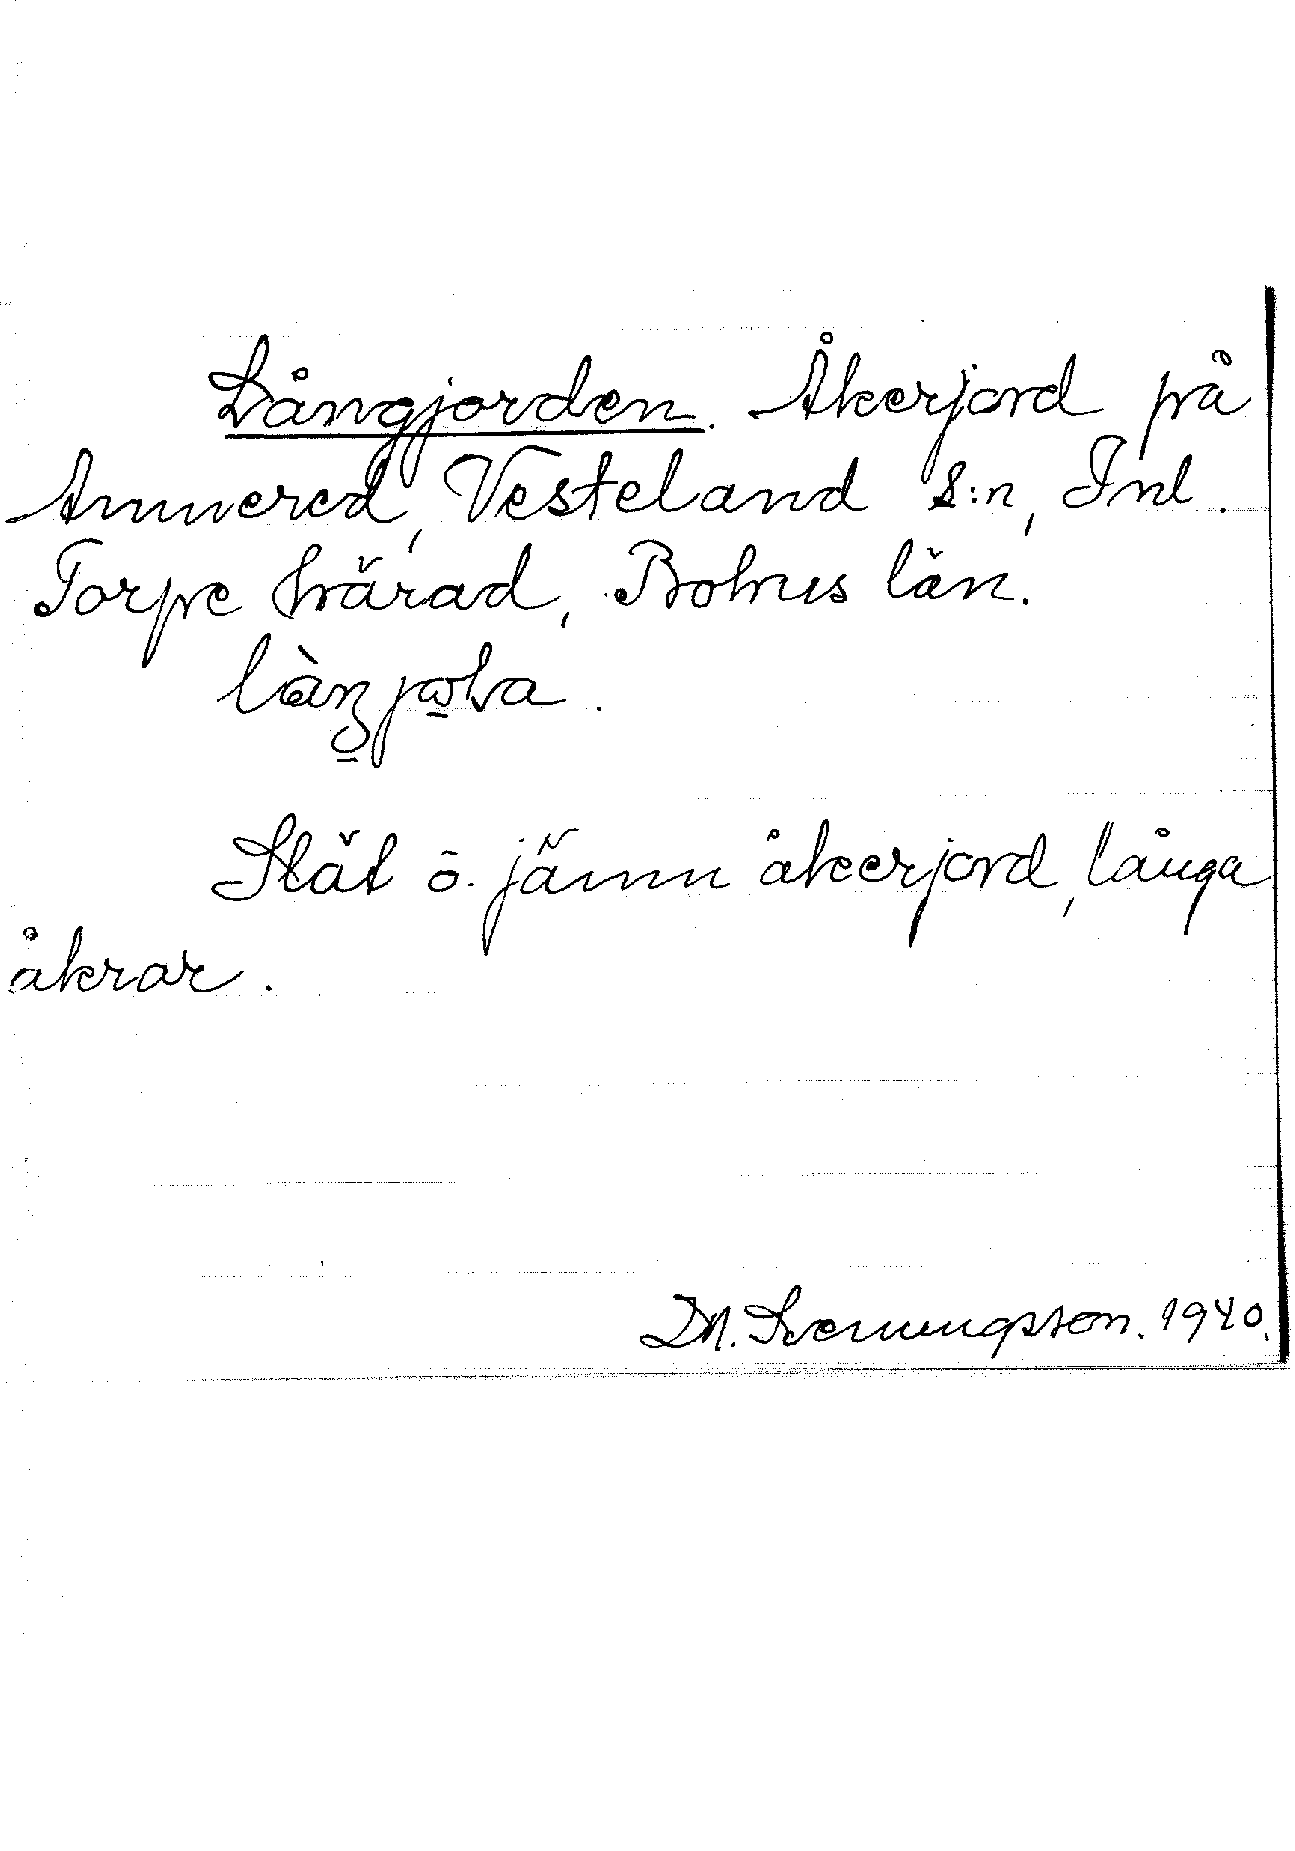 Långjorden. Åkerjord på
Amnered, Vesteland s:n, Inl.
Torpe härad, Bohus län.
Slät o. jämn åkerjord, långa
åkrar.
D.N. 1940.